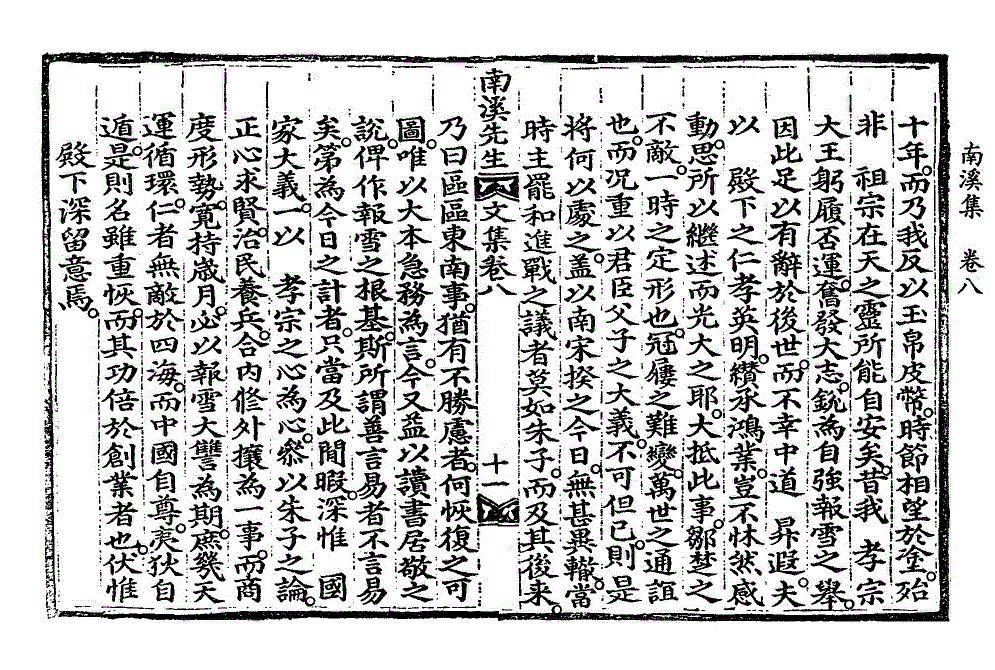 南溪集　卷八
十年。而乃我反以玉帛皮幣。時節相望於塗。殆
非　祖宗在天之靈所能自安矣。昔我　孝宗
大王躬履否運。奮發大志。銳為自強報雪之舉。
因此足以有辭於後世。而不幸中道　昇遐。夫
以　殿下之仁孝英明。纘承鴻業。豈不怵然感
動。思所以繼述而光大之耶。大抵此事。鄒楚之
不敵。一時之定形也。冠屨之難變。萬世之通誼
也。而况重以君臣父子之大義。不可但已。則是
將何以處之。盖以南宋揆之今日。無甚異轍。當
時主罷和進戰之議者莫如朱子。而及其後来。
南溪先生文集卷八　十一
乃曰區區東南事。猶有不勝慮者。何恢復之可
圖。唯以大本急務為言。今又益以讀書居敬之
說。俾作報雪之根基。斯所謂善言易者不言易
矣。第為今日之計者。只當及此間暇。深惟　國
家大義。一以　孝宗之心為心。叅以朱子之論
正心求賢。治民養兵。合内修外攘為一事。而商
度形勢。寬持歲月。必以報雪大讐為期。庶幾天
運循環。仁者無敵於四海。而中國自尊。夷狄自
遁。是則名雖重恢。而其功倍於創業者也。伏惟
殿下深留意焉。